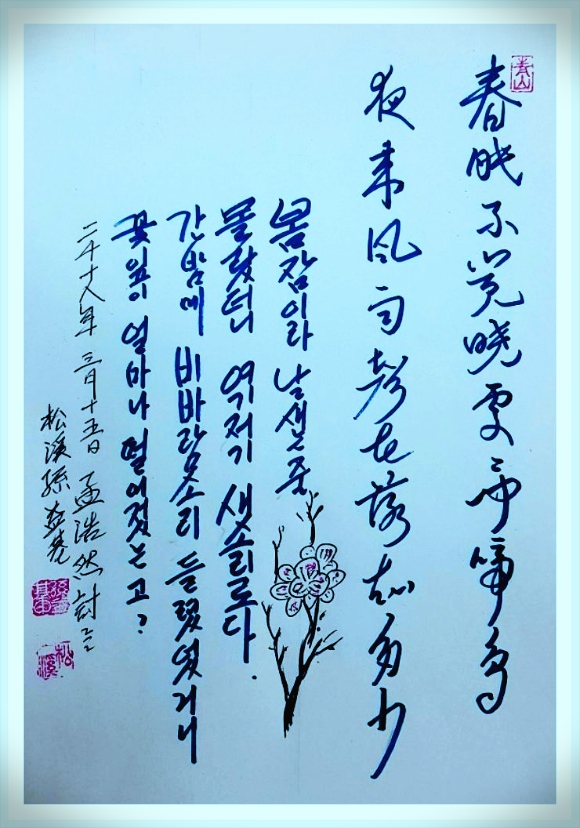 青山
春眠不覚曉處々聞啼鳥
夜来風雨聲花落知多少
봄잠이라 날샌줄
몰랐더니 역저기 샛소리로다.
간밤에 비바람소리 들렸었거니
꽃잎이 얼마나 떨어졌는고?
二千十八年 三月十五日 孟浩然 詩
松溪 孫
松溪